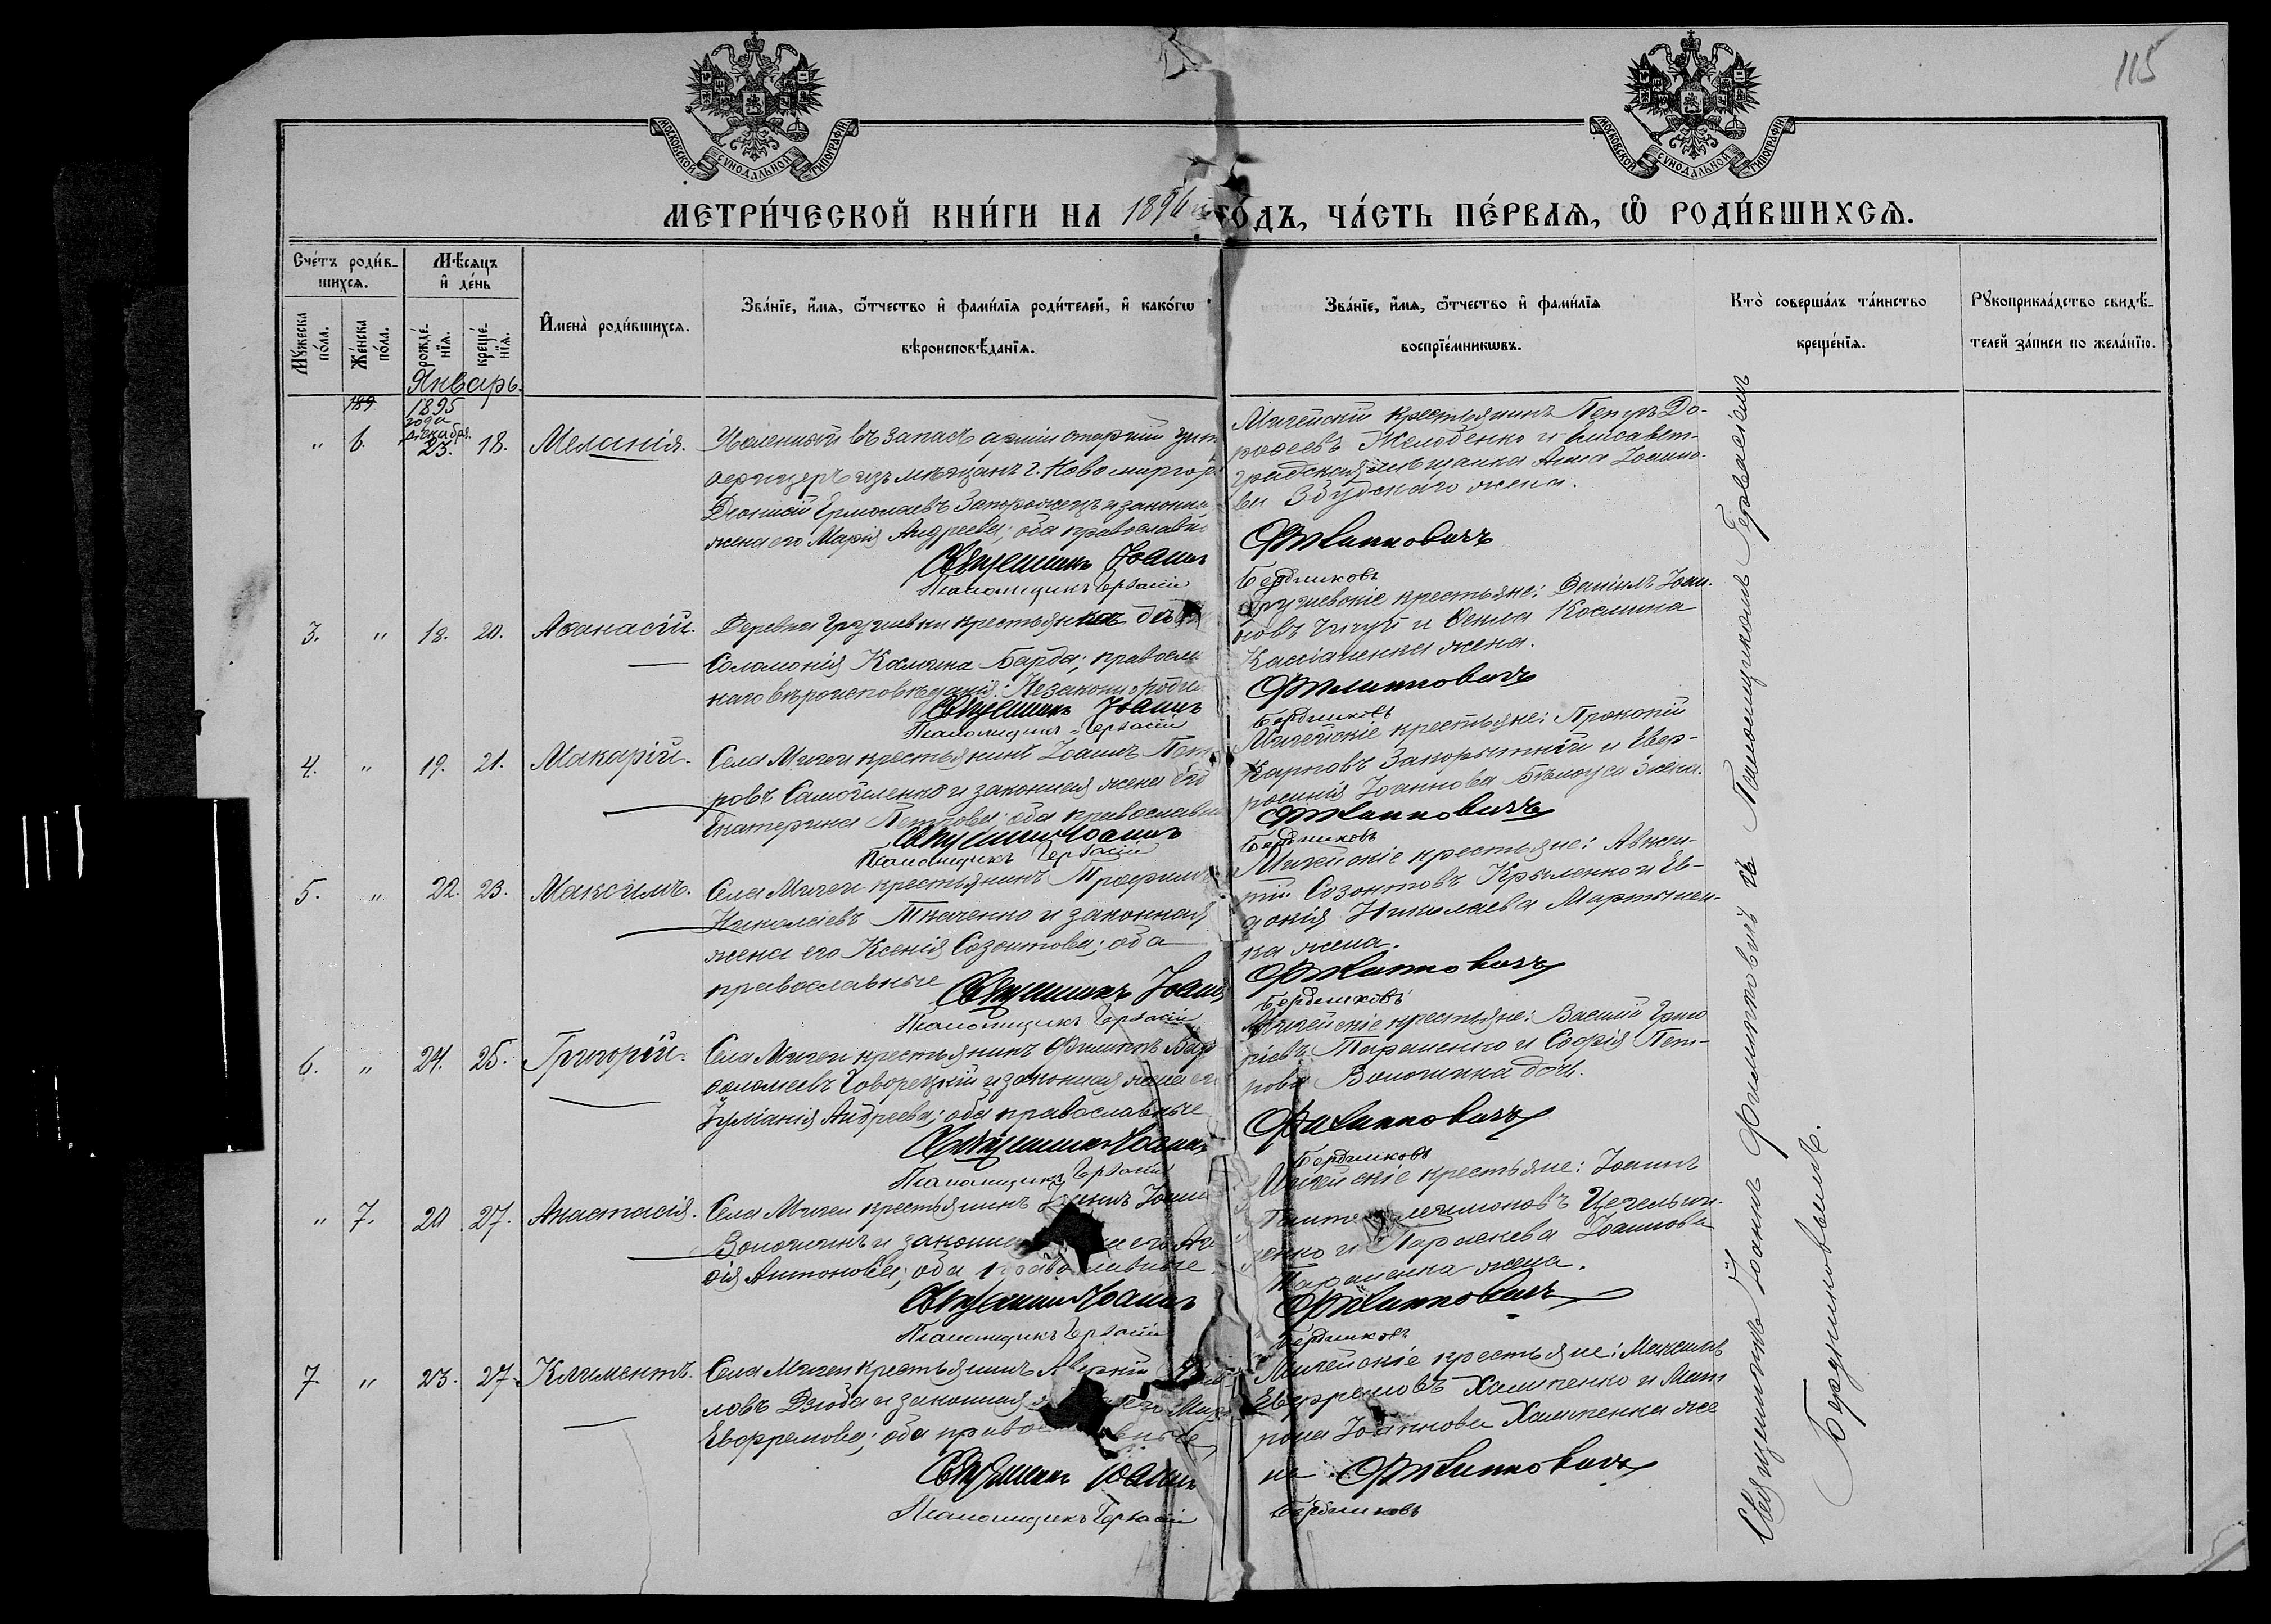 115
МОСКОВСКОЙ СѴНОДАЛЬНОЙ ТИПОГРАФІИ.
МОСКОВСКОЙ СѴНОДАЛЬНОЙ ТИПОГРАФІИ.
МЕТРИ́ЧЕСКОЙ КНИ́ГИ НА 1896 ГО́ДЪ, ЧА́СТЬ ПЕ́РВАѦ, Ѡ҆ РОДИ́ВШИХСѦ.
Сче́тъ роди́в-
шихсѧ.
Мѣ́сѧцъ
и҆ де́нь
Мꙋ́жеска
по́ла.
Же́нска
по́ла.
рожде́-
нїѧ.
креще́-
нїѧ.
И҆мена̀ роди́вшихсѧ.
Зва́нїе, и҆́мѧ, ѻ҆́тчество и҆ фами́лїѧ роди́телей, и҆ како́гѡ
вѣроисповѣ́данїѧ.
Зва́нїе, и҆́мѧ, ѻ҆́тчество и҆ фами́лїѧ
воспрїе́мникѡвъ.
Кто̀ соверша́лъ та́инство
креще́нїѧ.
Рꙋкоприкла́дство свидѣ́-
телей за́писи по жела́нїю.
Январь.
189
1895
года
декабря.
" 1. 23. 18. Меланія.
Уволенный въ запасъ арміи старшій унт
офицеръ изъ мѣщанъ г. Новомиргор
Діонисій Ермолаевъ Запорожецъ и законна
жена его Марія Андреева; оба православн
Священникъ Іоаннъ
Псаломщикъ Гервасій
Мигейскій крестьянинъ Петръ До-
рофеевъ Желобенко и Елисавет-
градская мѣщанка Анна Іоанно-
ва Збудскаго жена.
Филипповичъ
Бердниковъ
3. " 18. 20. Афанасій.
Деревни Грушевки крестьянка дѣв
Соломонія Космина Барда; правосла
наго вѣроисповѣданія. Незаконнорожд
Священникъ Іоаннъ
Псаломщикъ Гервасій
Грушевскіе крестьяне: Даніилъ Іоан-
новъ Чигуй и Фекла Космина
Касіаненка жена.
Филипповичъ
Бердниковъ
4. " 19. 21. Макарій.
Села Мигеи крестьянинъ Іоаннъ Пет
ровъ Самойленко и законная жена его
Екатерина Петрова; оба православн
Священникъ Іоаннъ
Псаломщикъ Гервасій
Мигейскіе крестьяне: Прокопій
Карповъ Запорытній и Евф-
росинія Іоаннова Бѣлоуса жена.
Филипповичъ
Бердниковъ
5. " 22. 23. Максимъ.
Села Мигеи крестьянинъ Трофимъ
Николаевъ Ткаченко и законная
жена его Ксенія Созонтова; оба
православные
Священникъ Іоаннъ
Псаломщикъ Гервасій
Мигейскіе крестьяне: Авксен-
тій Созонтовъ Крыленко и Ев-
докія Николаева Мартынен-
ка жена.
Филипповичъ
Бердниковъ
6. " 24. 25. Григорій.
Села Мигеи крестьянинъ Филиппъ Вар
фоломеевъ Говорецкій и законная жена ег
Іуліанія Андреева; оба православные
Священникъ Іоаннъ
Псаломщикъ Гервасій
Мигейскіе крестьяне: Василій Григо
ріевъ Тараненко и Софія Пет-
рова Волошина дочь.
Филипповичъ
Бердниковъ
" 7. 20 27. Анастасія.
Села Мигеи крестьянинъ Іоаннъ Іоанн
Волошинъ и законна его Ага
фія Антонова; оба православные
Священникъ Іоаннъ
Псаломщикъ Гервасій
Мигейскіе крестьяне: Іоаннъ
Цегельни-
ченко и Іоаннова
Тараненка жена.
Филипповичъ
Бердниковъ
7. " 23. 27. Климентъ.
Села Мигеи крестьянинъ Аверкій
ловъ Дзюба и законная его
Евфремова; оба православные
Священникъ Іоаннъ
Псаломщикъ Гервасій
Мигейскіе крестьяне: Максимъ
Евфремовъ Халипенко и Мат
рона Іоаннова Халипенка же
на Филипповичъ
Бердниковъ
Священникъ Іоаннъ Филипповичъ съ Псаломщикомъ Гервасіемъ
Бердниковымъ.